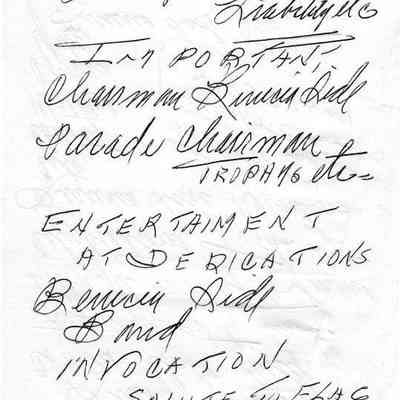 Liability etc
IMPORTANT
Chairman Benicia Side
Parade Chairman
TROPHYS etc=
ENTERTAIMENT
AT DEDICATIONS
Benicia Side
Band
INVOCATION
SALUTE TO FLAG